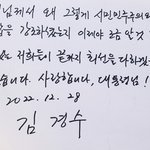 님께서 왜 그렇게 시민민주주의와
을 강조하셨는지 이제야 조금 알것
저희들이 끝까지 최선을 다하겠
습니다. 사랑합니다, 대통령님!
2022. 12. 28
김 경수